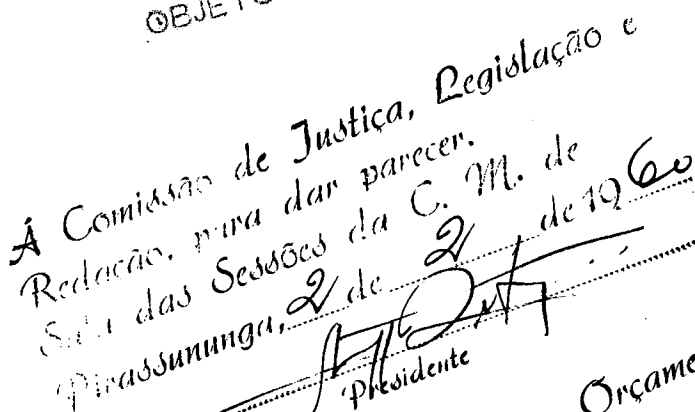 OBJETO
Á Comissão de Justiça, Legislação e
Redação, para dar parecer.
Sala das Sessões da C. M. de
Pirassununga, 2 de 2 de 1960
Presidente
Orçame